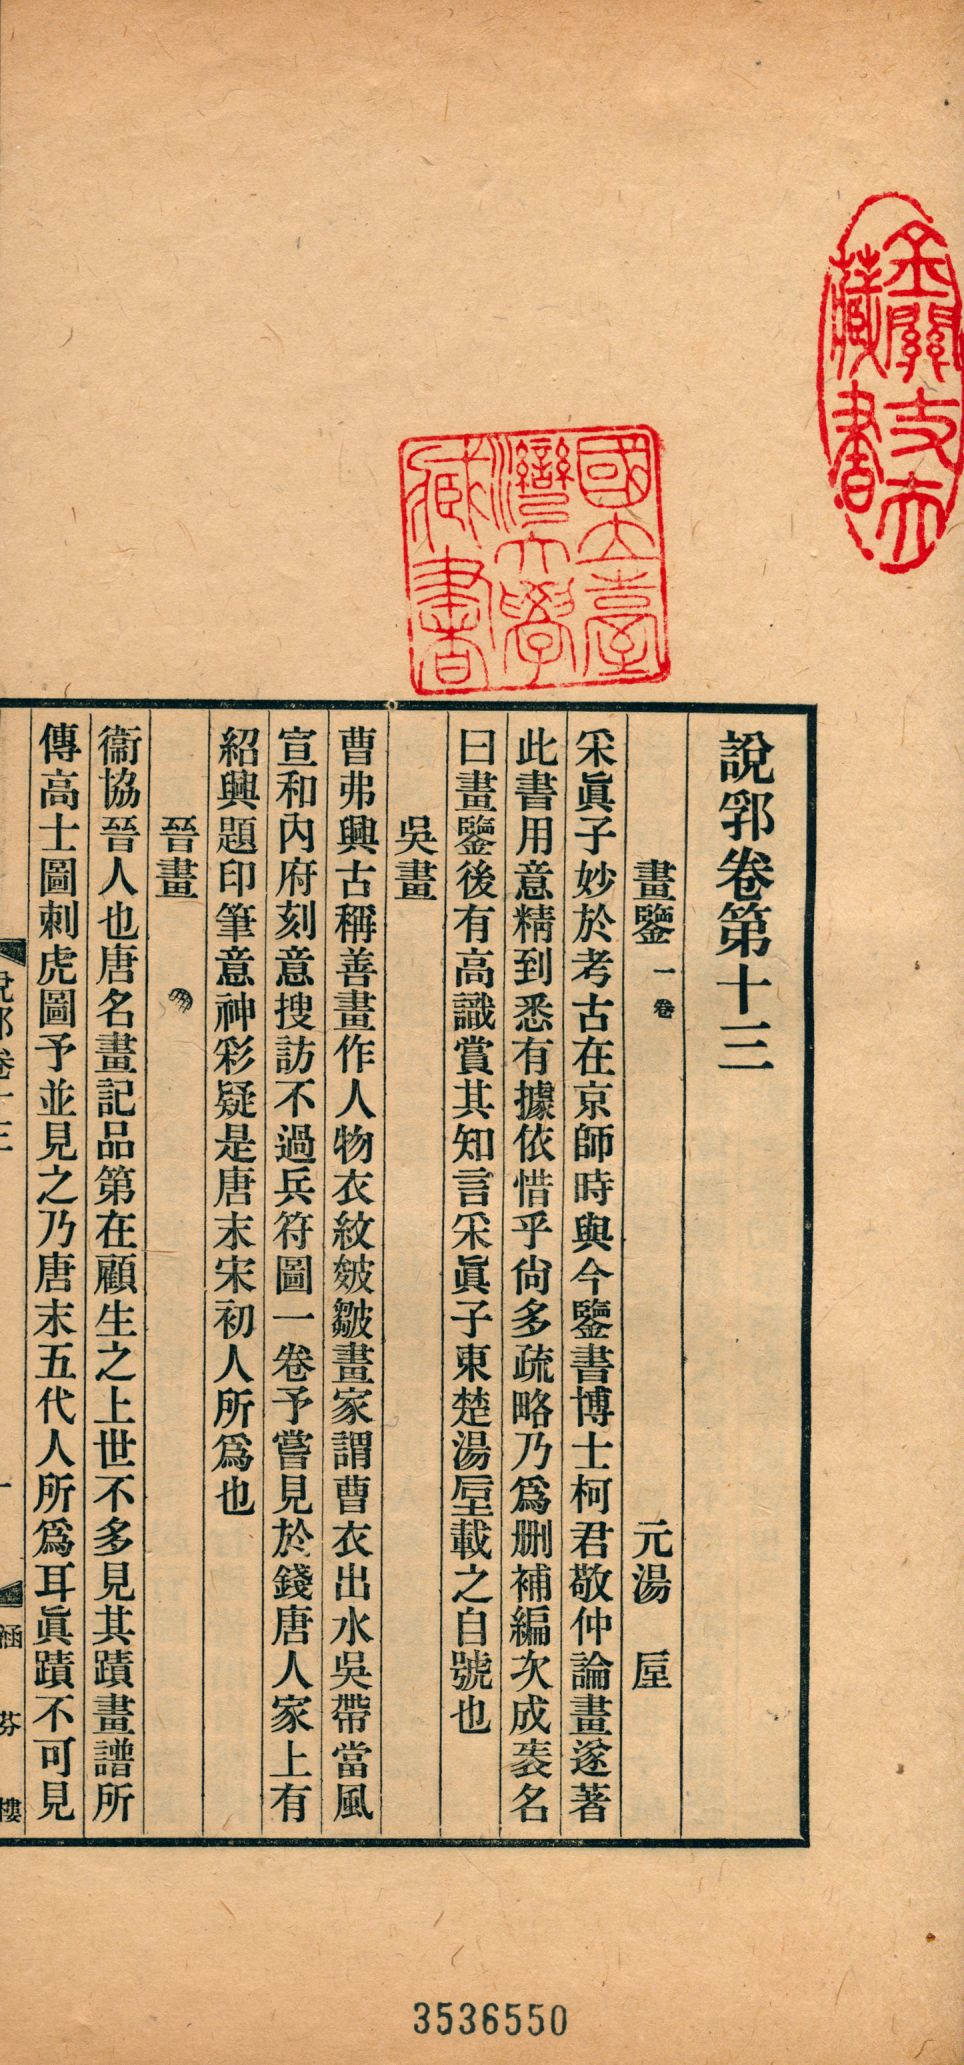 說郛卷第十三
畫鑒 一卷 元湯 垕
采眞子妙於考古在京師時與今鑒書博士柯君敬仲論畫遂著
此書用意精到悉有據依惜乎尙多疏略乃爲删補編次成袠名
曰畫鑒後有高識賞其知言采眞子東楚湯垕載之自號也
吳畫
曹弗興古稱善畫作人物衣紋皴皺畫家謂曹衣出水吳帶當風
宣和內府刻意搜訪不過兵符圖一卷予嘗見於錢唐人家上有
紹興題印筆意神彩疑是唐末宋初人所爲也
晉畫
衞協晉人也唐名畫記品第在顧生之上世不多見其蹟畫譜所
傳高士圖刺虎圖予並見之乃唐末五代人所爲耳眞蹟不可見
說郛卷十三 一 涵芬樓
國立臺灣大學藏書
金關丈夫藏書
3536550